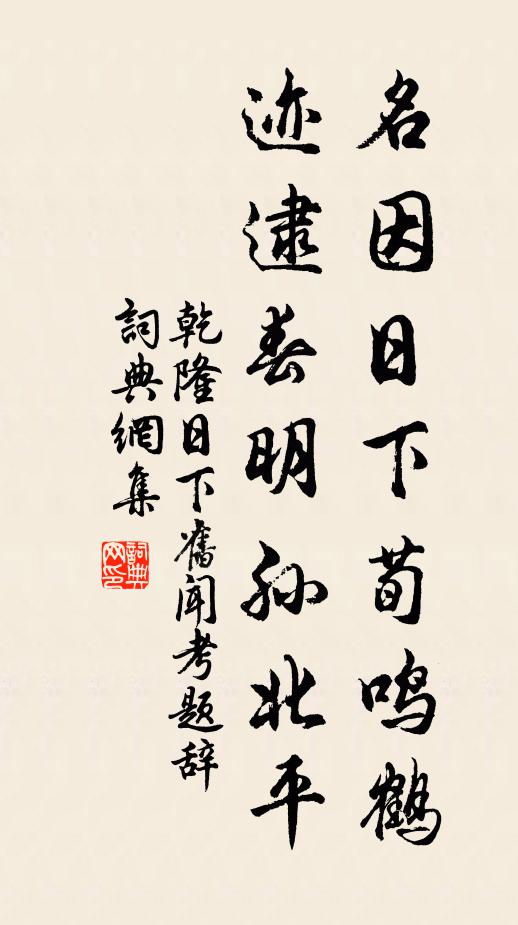 名因日下荀鸣鹤
迹逮春明孙北平
乾隆日下舊闻考题辞
詞典網集
詞典网印